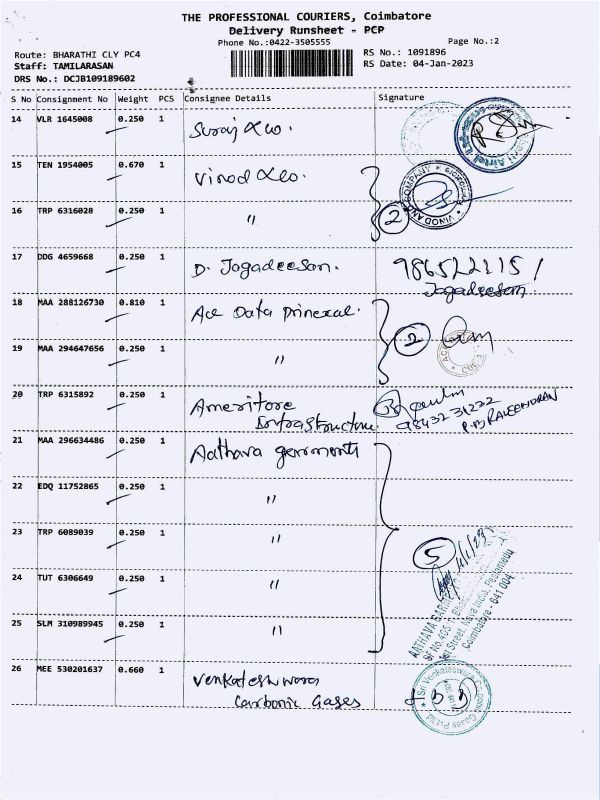 THE PROFESSIONAL COURIERS, Coimbatore
Delivery Runsheet - PCP
Phone No.:0422-3505555
Page No.:2
Route: BHARATHI CLY PC4
RS No.: 1091896
Staff: TAMILARASAN
RS Date: 04-Jan-2023
DRS No.: DCJB109189602
S No Consignment No Weight PCS Consignee Details Signature
14 VLR 1645008 0.250 1 Suraj &co.
15 TEN 1954005 0.670 1 Vinod &co.
VINOD AND COMPANY
16 TRP 6316028 0.250 1 " 2
17 DDG 4659668 0.250 1 D. Jagadeesan. 9865222115/
Jagadeesan
18 MAA 288126730 0.810 1 Ace Data
19 MAA 294647656 0.250 1 " 2
20 TRP 6315892 0.250 1 Ameritore
Infrastructure. 9843231222
P.B RAVEENDRAN
21 MAA 296634486 0.250 1 Aathava garments
22 EDQ 11752865 0.250 1 "
23 TRP 6089039 0.250 1 " 5
24 TUT 6306649 0.250 1 "
25 SLM 310989945 0.250 1 "
Coimbatore - 641 004
26 MEE 530201637 0.660 1 Venkateshwara
Carbonic Gases